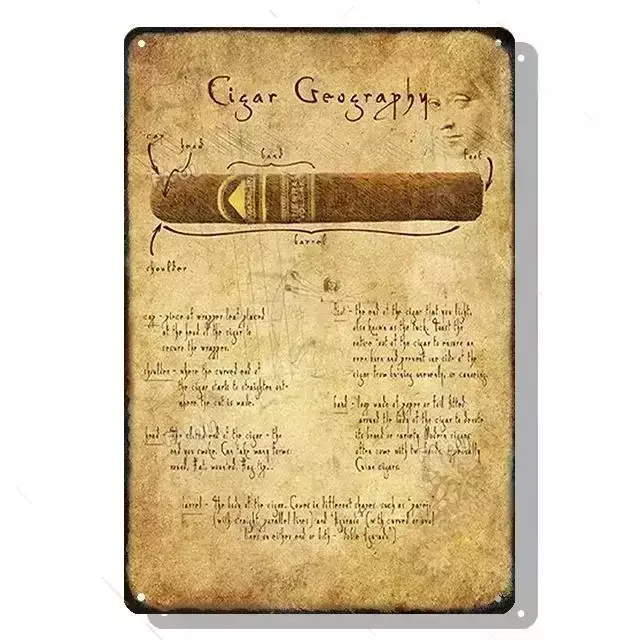 Cigar Geography
cap
head
band
foot
barrel
shoulder
cap - piece of wrapper leaf placed
at the head of the cigar to
secure the wrapper.
shoulder - where the curved end of
the cigar starts to straighten out-
where the cut is made.
head - The closed end of the cigar - the
end you smoke. Can take many forms:
round, flat,
foot - the end of the cigar that you light,
also known as the tuck. Toast the
entire foot of the cigar to ensure an
even burn and prevent one side of the
cigar from burning unevenly, or canoeing.
band - loop made of paper or foil fitted
around the body of the cigar to denote
its brand or variety. Modern cigars
often come with two bands, especially
Cuban cigars.
barrel - The body of the cigar. Comes in different shapes such as "parejo"
(with straight, parallel lines) and "figurado" (with curved or oval
lines on either end or both - "doble figurado")